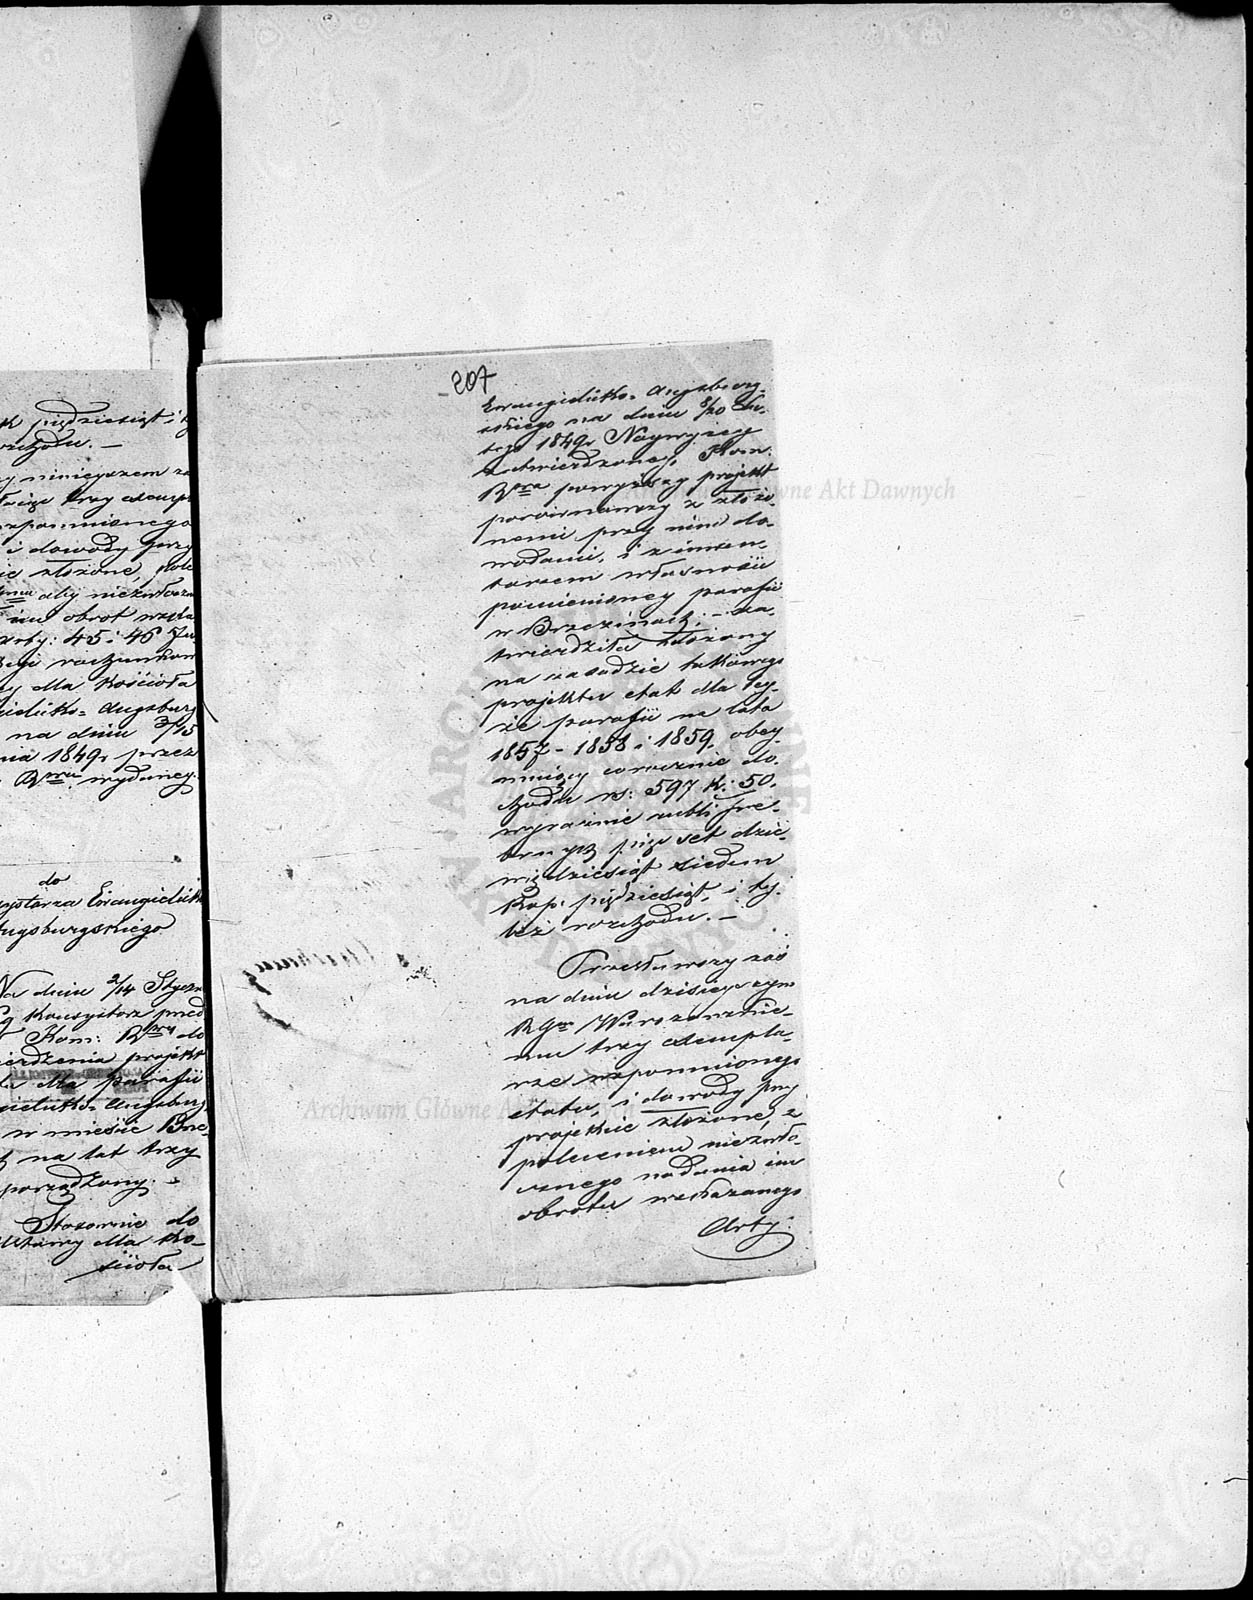 k pięździesiąt i t
rozchodu. —
y niniejszem za
trzy exempl
wspomnionego
i dowody przy
złożone, pole
aby niezwłoczn
im obrot wska
Arty: 45 i 46 Ju
racyi rachunkow
y dla Kościoła
gielicko-Augsburg
na dniu 3/15
nia 1849r przez
Rową wydanej.
do
systorza Ewangielick
Augsburgskiego
Na dniu 2/14 Styczn
Konsystorz przed
Kom: Rowy do
ierdzenia projekt
tu dla parafii
gielicko-Augsburg
w mieście Brze
na lat trzy
porządzony. —
Stosownie do
Ustawy dla Ko-
ścioła
207
Ewangielicko-Augsburg-
skiego na dniu 8/20 Lu-
tego 1849r Najwyżej
zatwierdzonej, Kom:
Rowa powyższy projekt
porównawszy z złożo-
nemi przy nim do-
wodami, i z inwen-
tarzem własności
pomienioney parafii
w Brzezinach; — za-
twierdziła złożony
na zasadzie takowego
projektu etat dla tey-
że parafii na lata
1857 - 1858 i 1859, obey-
mujący corocznie do-
chodu rs: 597 k: 50.
wyraźnie rubli sre-
brnych pięć set dzie-
więdziesiąt siedem
kop: pięździesiąt, i ty-
leż rozchodu. —
Przesławszy zaś
na dniu dzisieyszym
RGu Warszawskie-
mu trzy exempla-
rze wspomnionego
etatu, i dowody przy
projekcie złożone, z
poleceniem niezwło-
cznego nadania im
obrotu wskazanego
Arty:
Archiwum Główne Akt Dawnych
Archiwum Główne Akt Dawnych